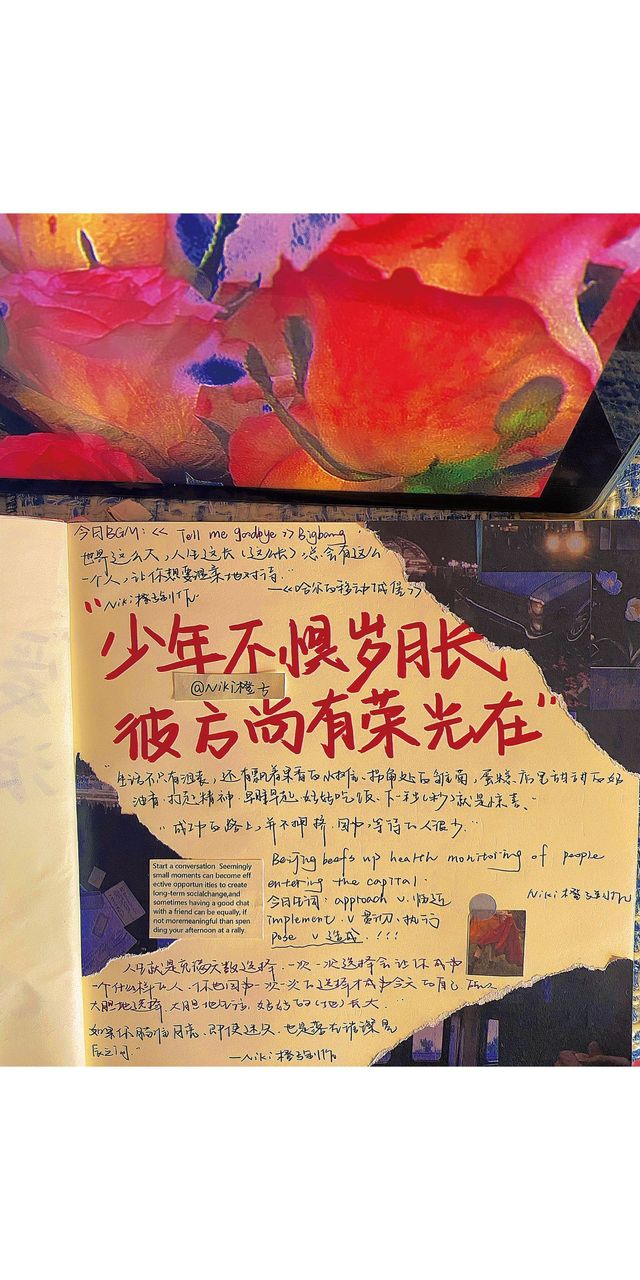 今日BGM：<< Tell me goodbye >> Bigbang
世界这么大，人生这长(这么长)总会有这么
一个人，让你想要温柔地对待."
—<<哈尔的移动城堡>>
Niki橙制作
"少年不惧岁月长
@Niki橙
彼方尚有荣光在"
"生活不只有沮丧，还有飘着果香的水
油.打起精神.早睡早起.好好吃饭.下一秒(秒)就是惊喜."
"成功的路上，并不拥挤.因为坚持的人很少."
Start a conversation Seemingly
small moments can become eff
ective opportun ities to create
long-term socialchange,and
sometimes having a good chat
with a friend can be equally, if
not moremeaningful than spen
ding your afternoon at a rally.
Beijing beefs up health monitoring of people
entering the capital.
今日生词：approach v.临近
implement .v 贯彻.执行
pose v 造成.！！！
Niki橙制作
人生就是充满无数选择.一次一次选择会让你成为
一个什么样的人.你也因为一次一次的选择才成为今天的自己.所以
大胆地选择.大胆地生活.好好的(地)长大."
如果你瞄准月亮.即使迷失.也是落在诸谋星
辰之间."
—Niki橙制作